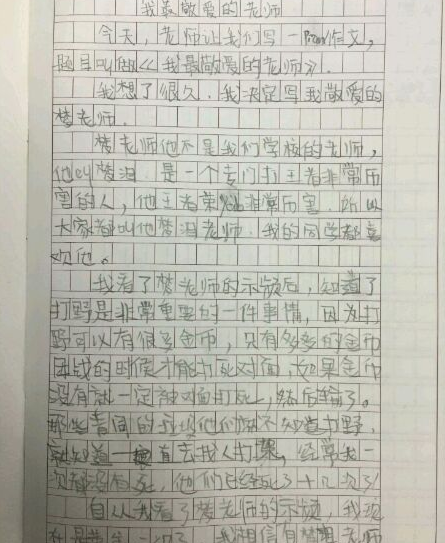 我最敬爱的老师
今天,老师让我们写一作文,
题目叫做《我最敬爱的老师》.
我想了很久.我决定写我敬爱的
梦老师.
梦老师他不是我们学校的老师,
他叫梦泪.是一个专门打王者非常厉
害的人,他王者荣耀非常厉害.所以
大家都叫他梦泪老师.我的同学都喜
欢他。
我看了梦老师的示频后,知道了
打野是非常重要的一件事情,因为打
野可以有很多金币,只有多多的金币
团战的时候才能打死对面.如果金币
没有就一定被对面打死,然后输了。
那些青同的垃圾他们都不知道打野.
就知道一直去找人打架,经常我一
次都没有死,他们已经死了十几次了
自从我看了梦老师的示频,我现
我相信有梦老师